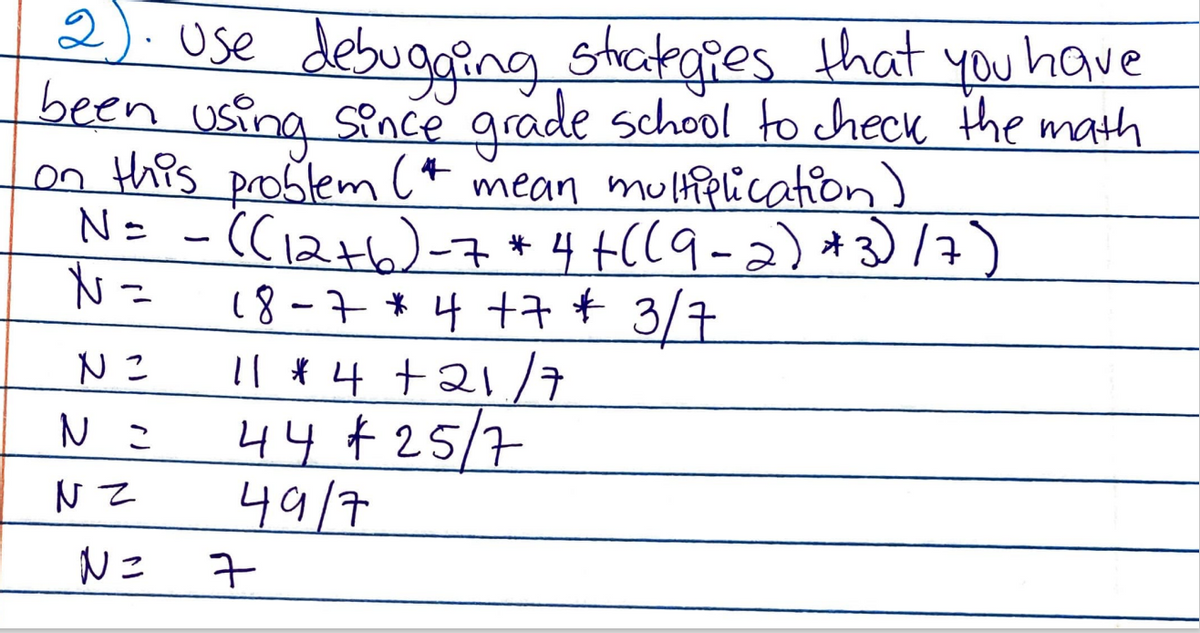 2). Use debugging strategies that you have
been using since grade school to check the math
on this problem (* mean multiplication)
N = -((12+6)-7 * 4 +((9-2) *3) /7)
N = 18-7 * 4 +7 * 3/7
N = 11 * 4 +21/7
N = 44 + 25/7
N = 49/7
N = 7